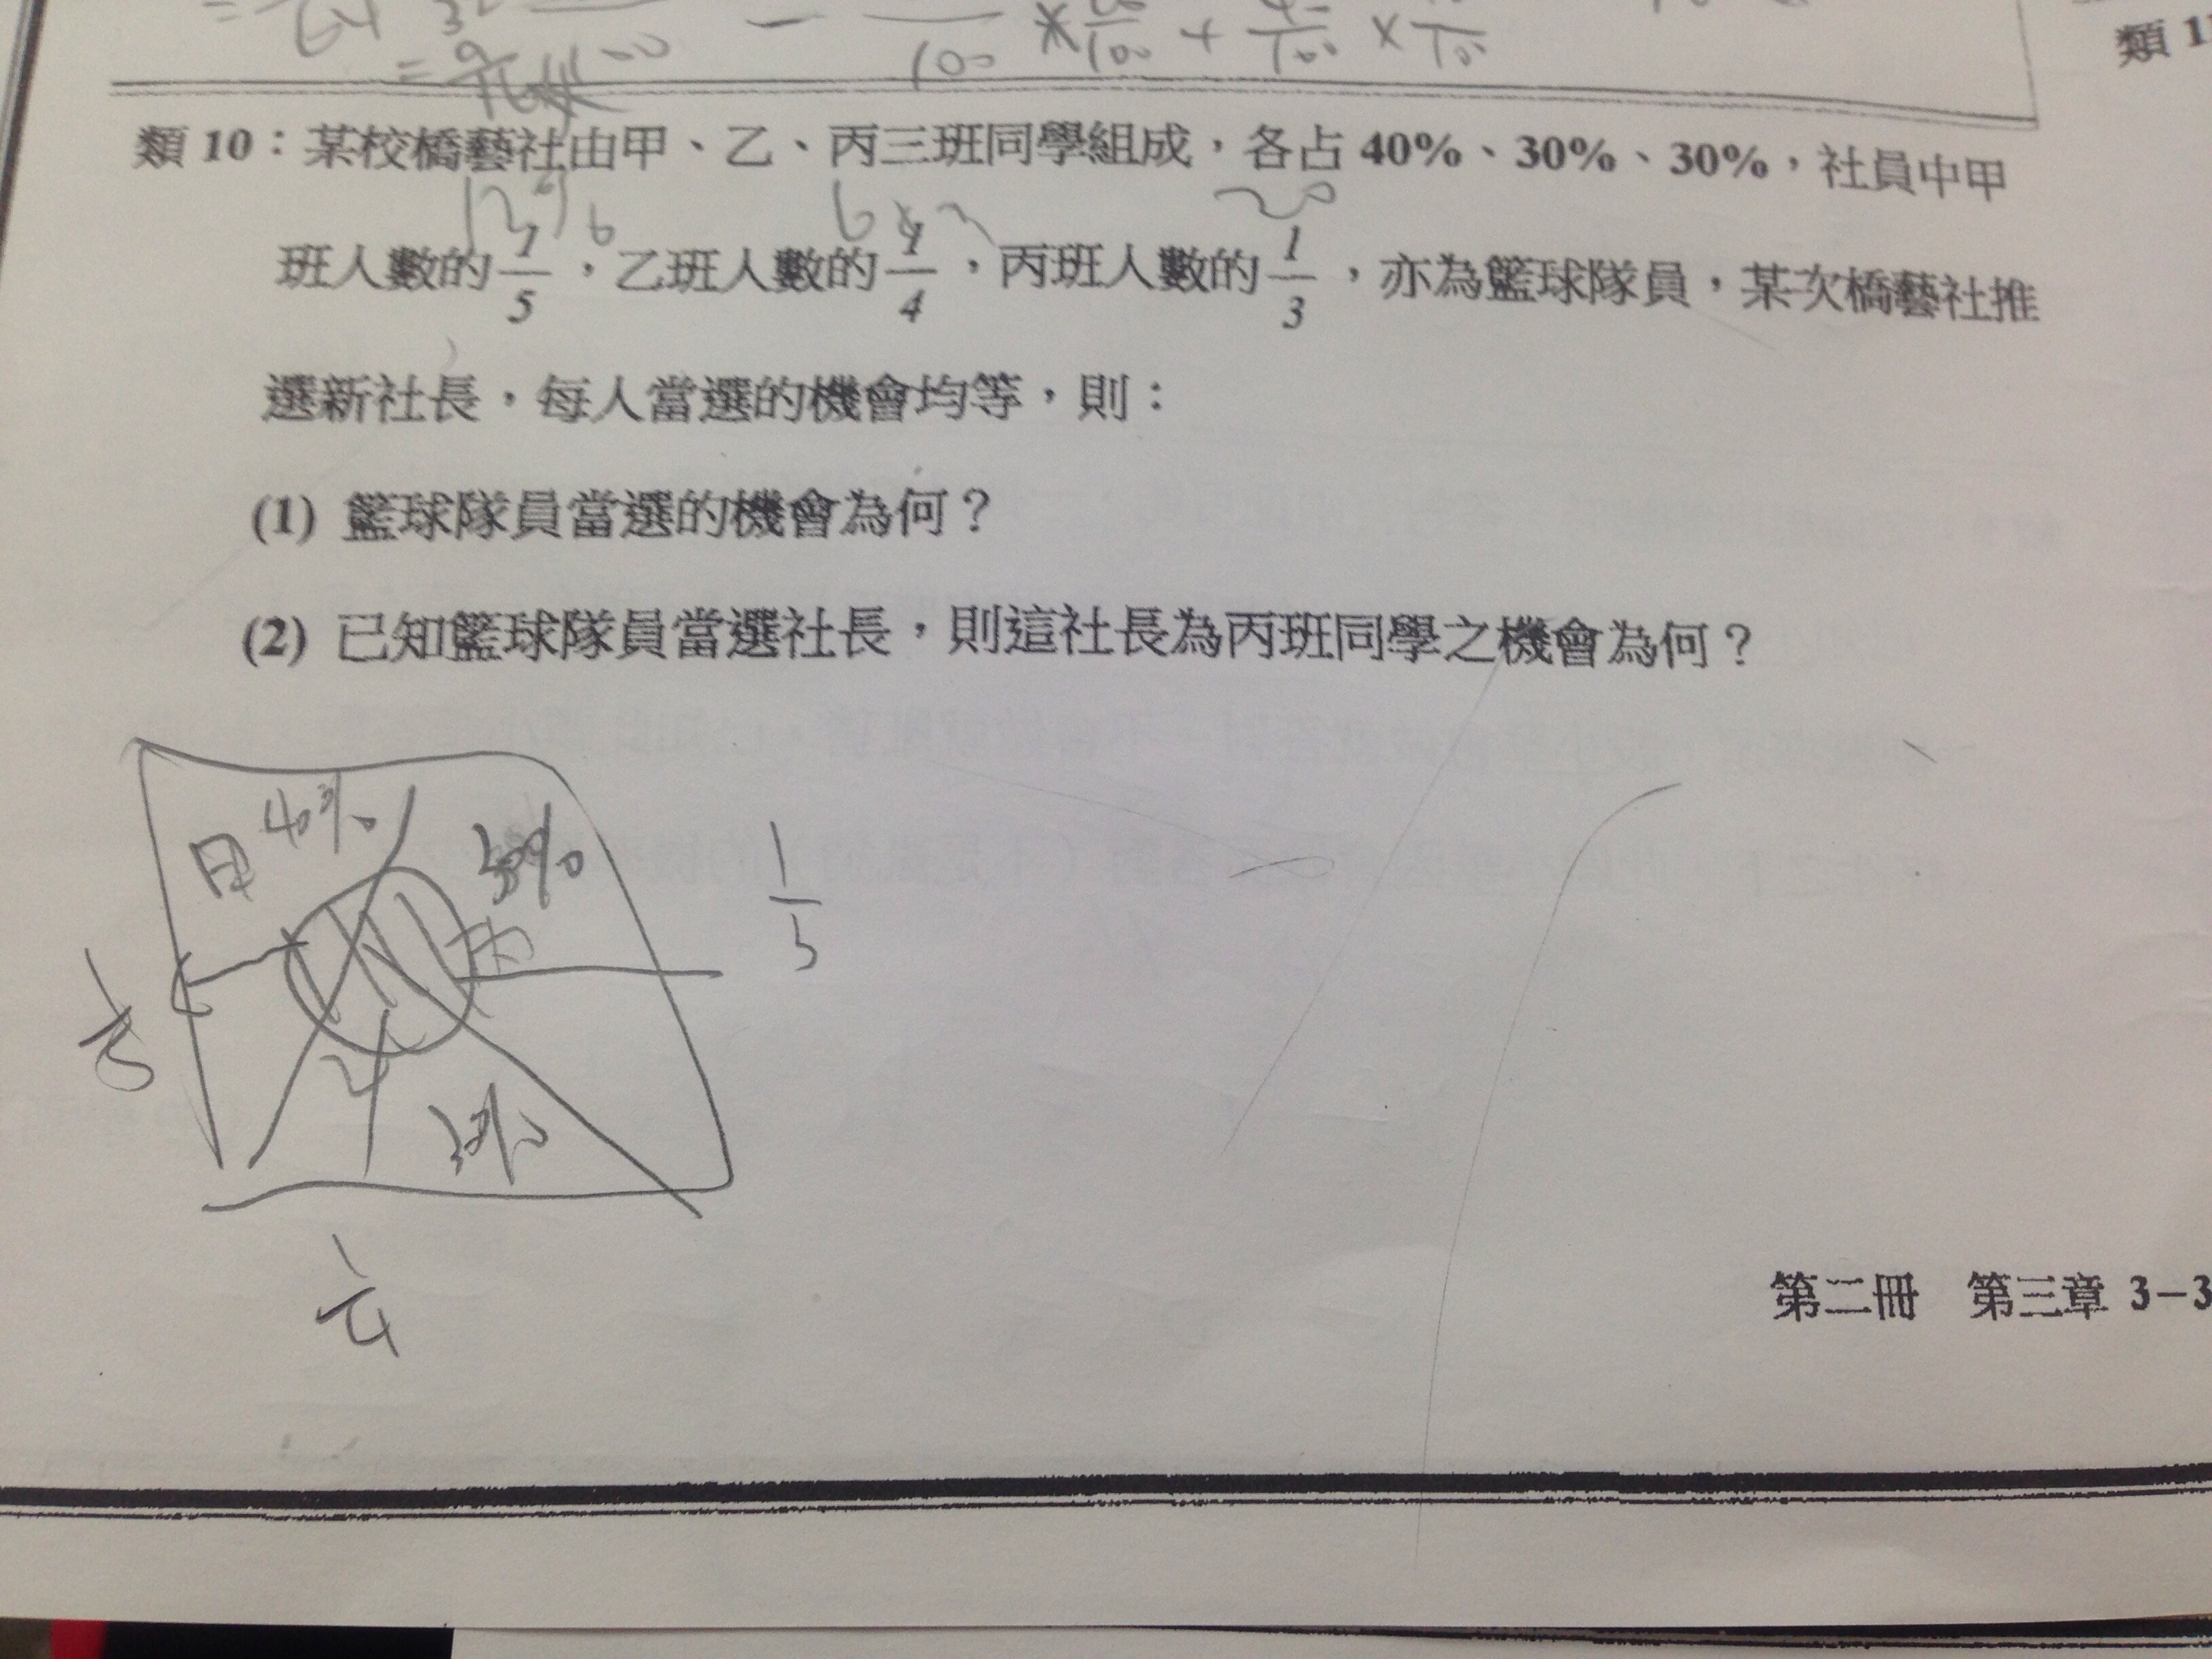 100 × 100 + 100 ×
類 1
類 10：某校橋藝社由甲、乙、丙三班同學組成，各占 40%、30%、30%，社員中甲
班人數的 1/5，乙班人數的 1/4，丙班人數的 1/3，亦為籃球隊員，某次橋藝社推
選新社長，每人當選的機會均等，則：
(1) 籃球隊員當選的機會為何？
(2) 已知籃球隊員當選社長，則這社長為丙班同學之機會為何？
甲 40%
30%
丙
1/3
1/5
乙
30%
1/4
第二冊 第三章 3－3